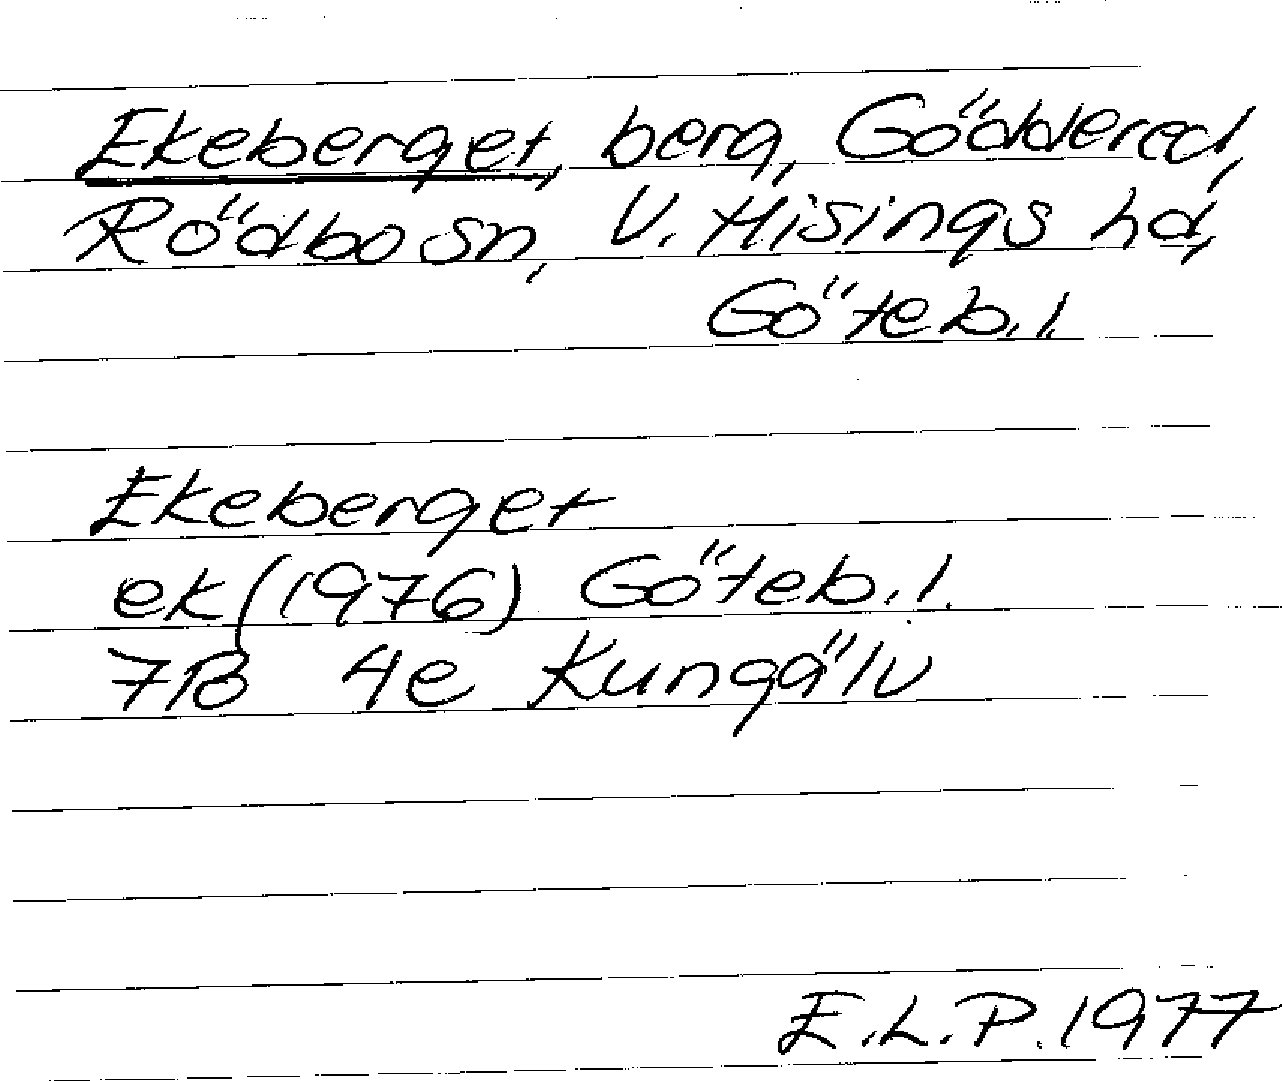 Ekeberget, berg, Göddered,
Rödbo sn, V. Hisings hd,
Göteb. l.
Ekeberget
ek (1976) Göteb. l.
7B 4e Kungälv
E.L.P. 1977